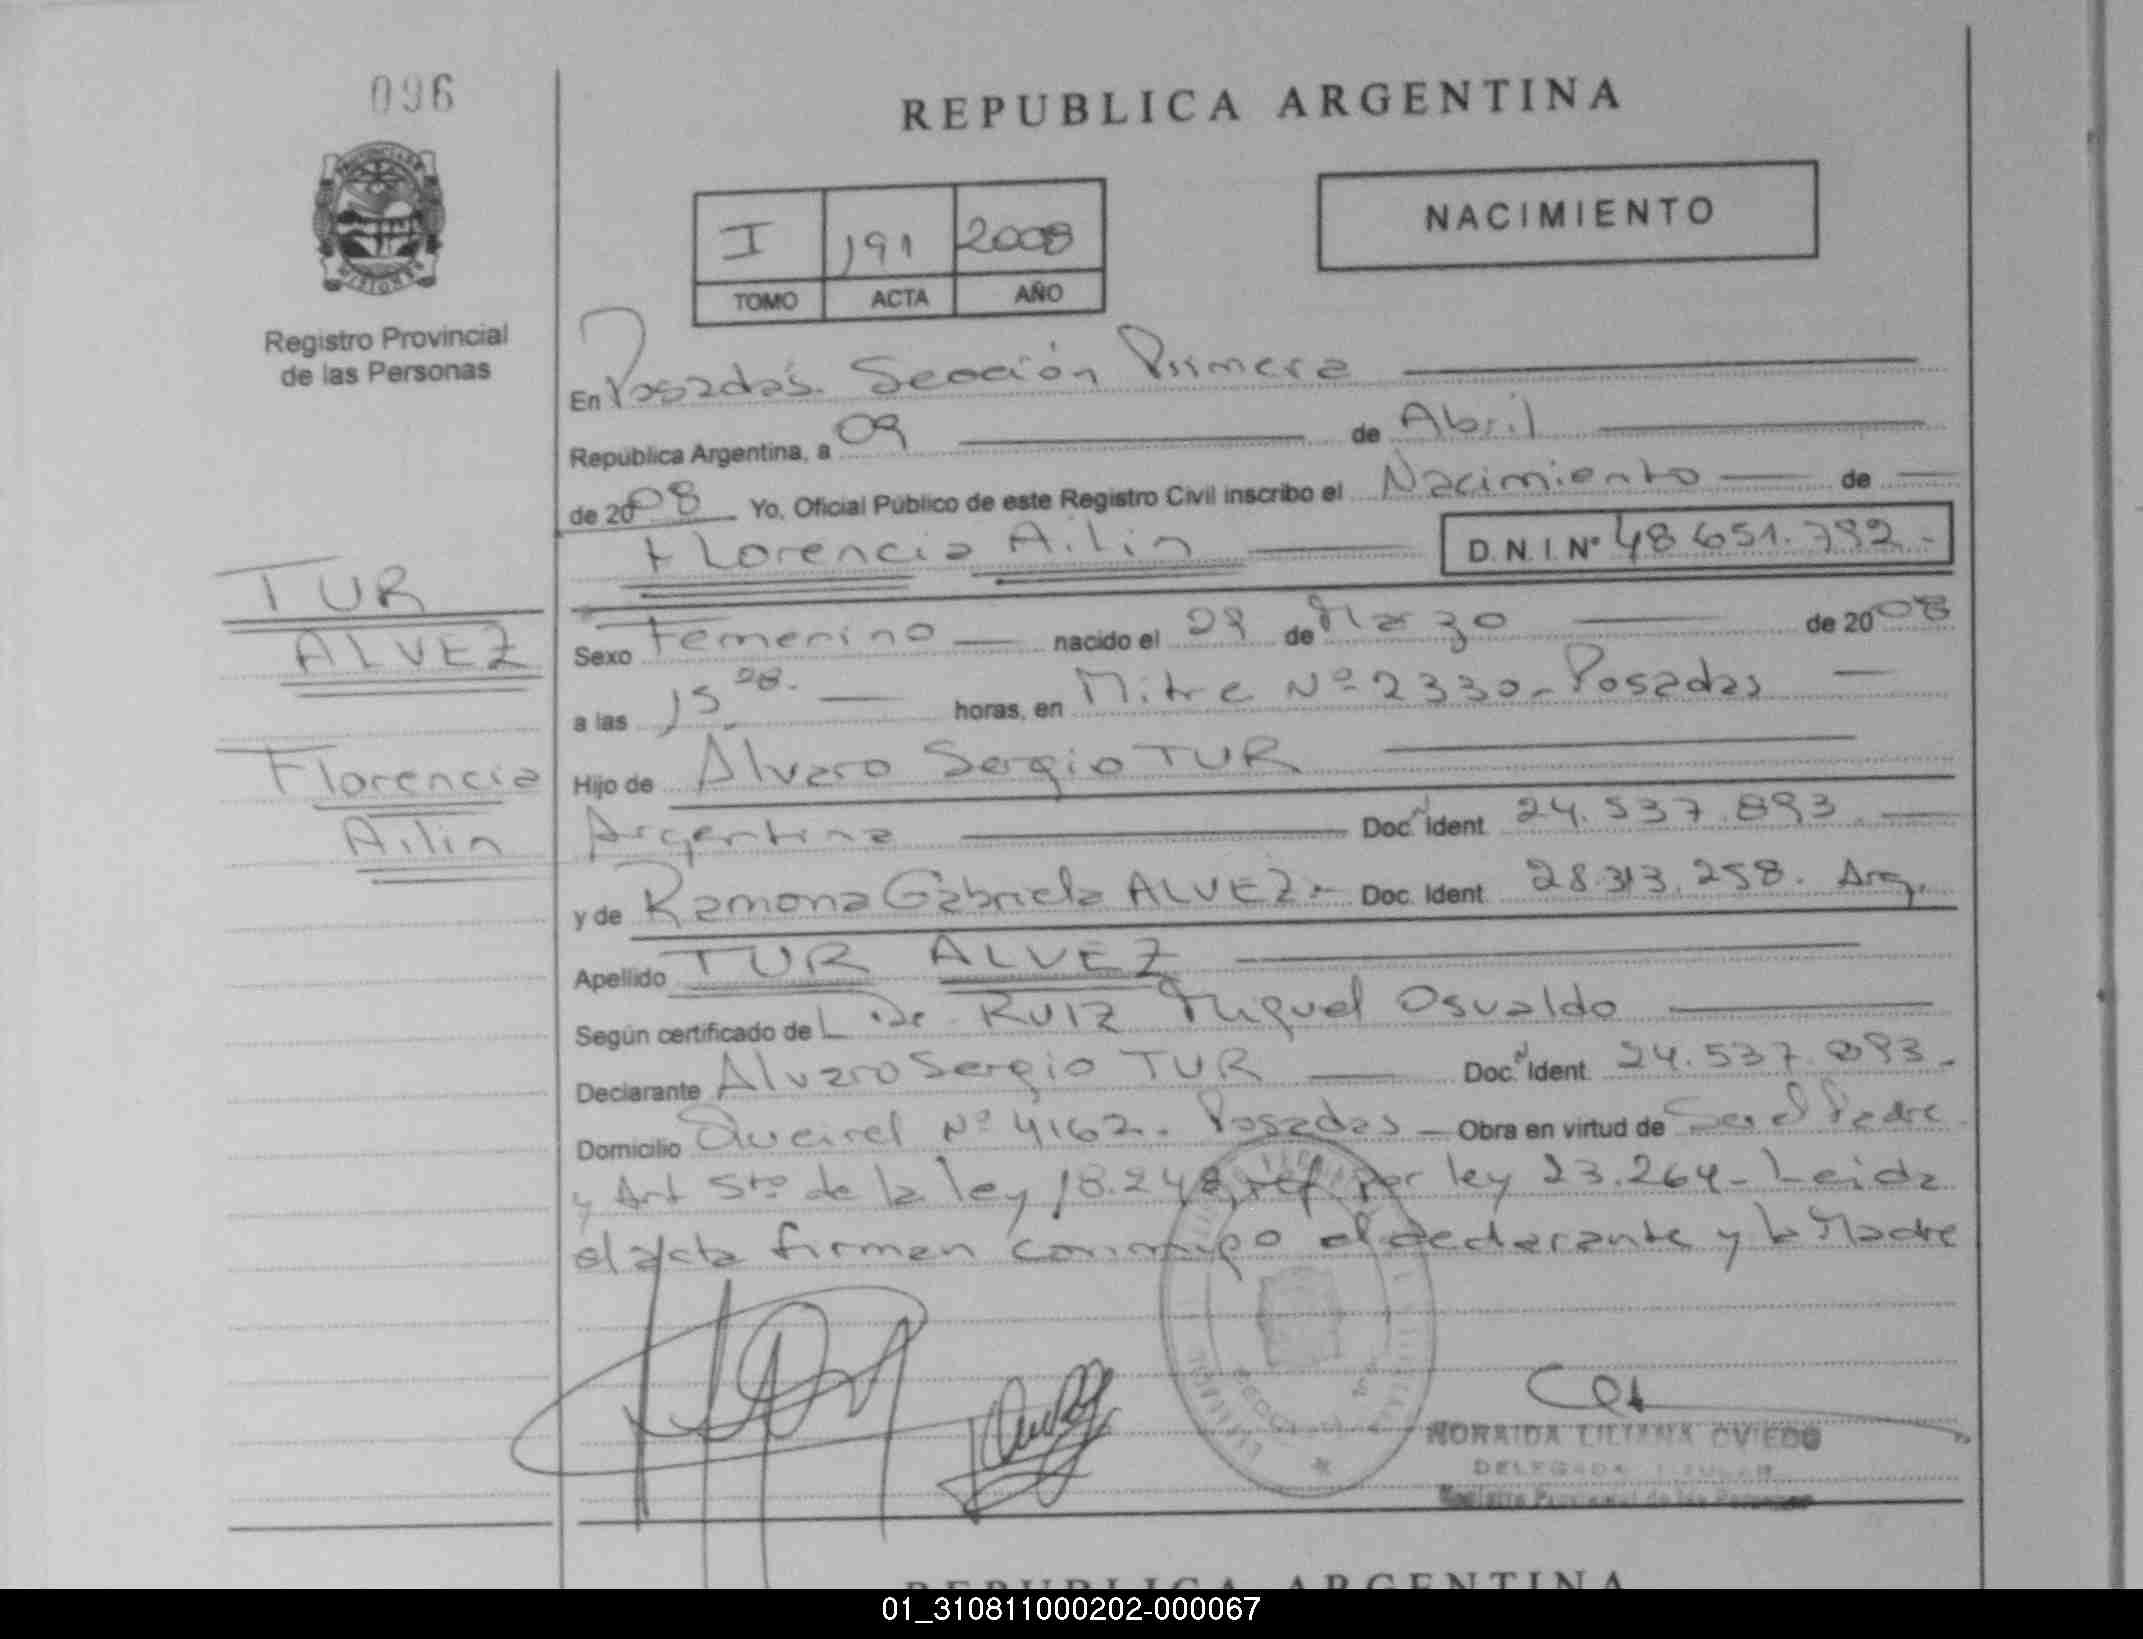 096
REPUBLICA ARGENTINA
I 191 2008
TOMO ACTA AÑO
NACIMIENTO
Registro Provincial
de las Personas
En Posadas. Sección Primera
República Argentina, a 09 de Abril
de 2008 Yo, Oficial Público de este Registro Civil inscribo el Nacimiento de
Florencia Ailin D.N.I. Nº 48.651.792.-
TUR
ALVEZ
Florencia
Ailin
Sexo Femenino nacido el 29 de Marzo de 2008
a las 15. horas, en Mitre Nº 2330.- Posadas
Hijo de Alvaro Sergio TUR
Argentina Doc. Ident. 24.537.893.
y de Ramona Gabriela ALVEZ.- Doc. Ident. 28.313.258. Arg.
Apellido TUR ALVEZ
Según certificado de RUIZ Miguel Osvaldo
Declarante Alvaro Sergio TUR Doc. Ident. 24.537.893.-
Domicilio Queirel Nº 4162. Posadas - Obra en virtud de Ser el Padre
y Art 5to de la ley 18.248, ref por ley 23.264.- Leida
el acta firman conmigo el declarante y la Madre
NORAIDA LILIANA OVIEDO
DELEGADA TITULAR
Registro Provincial de las Personas
REPUBLICA ARGENTINA
01_310811000202-000067